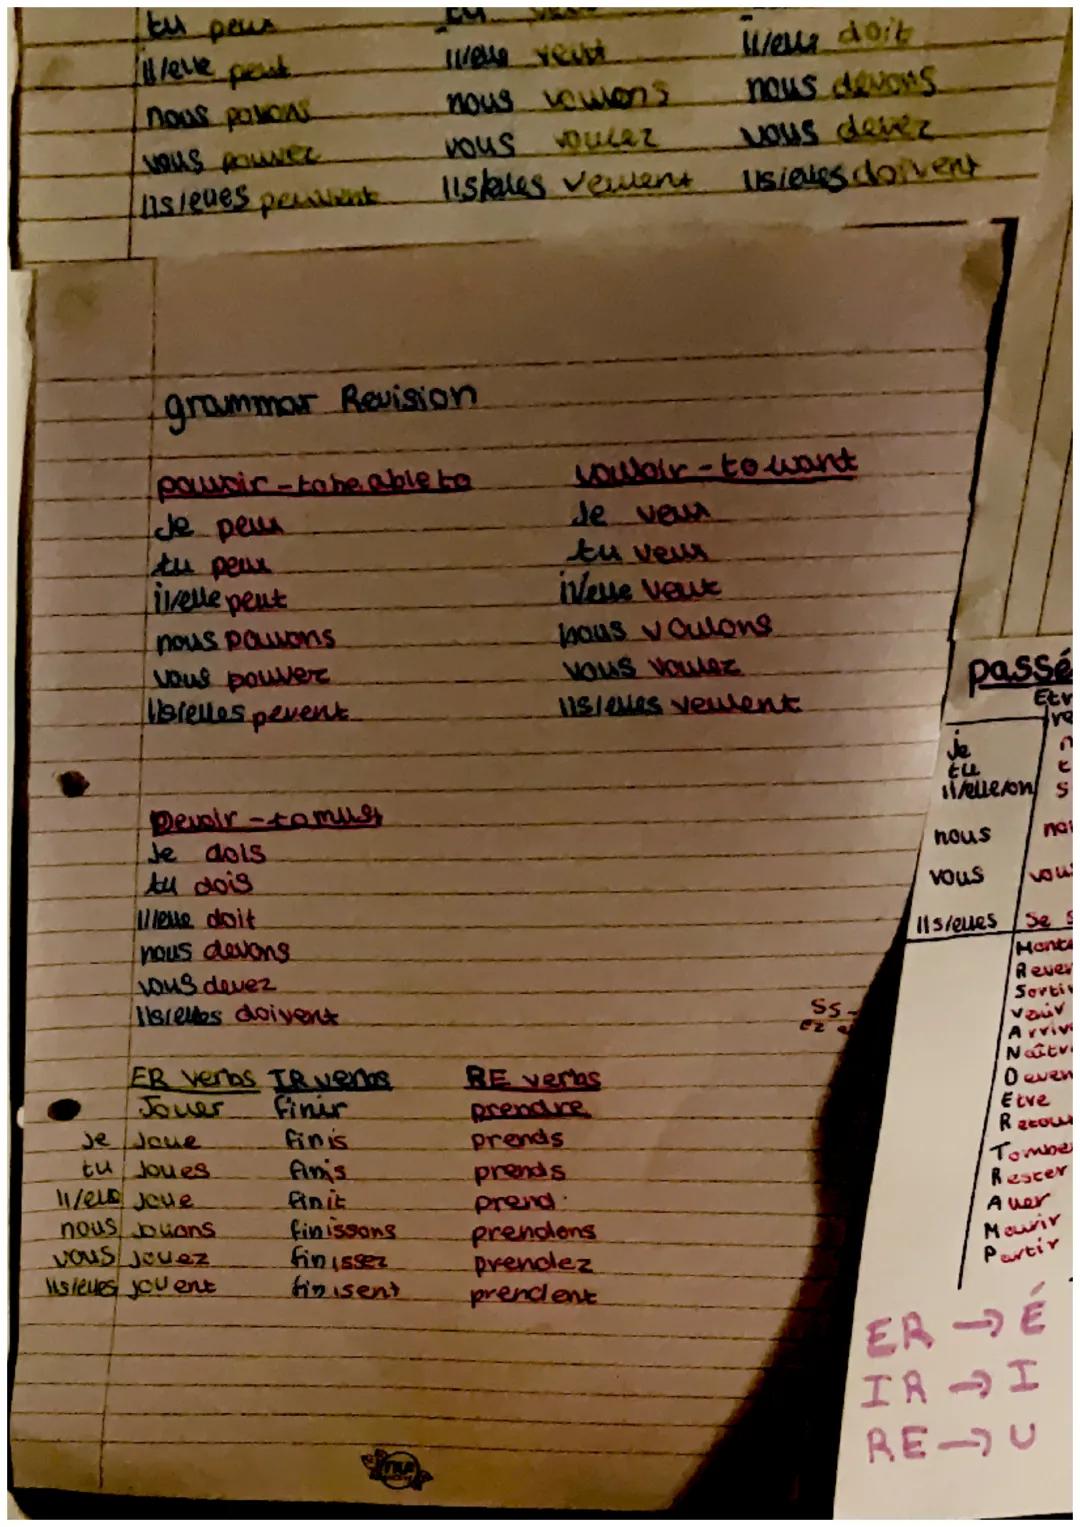 tu peux
il/elle peut il/elle veut il/elle doit
nous pouvons nous voulons nous devons
vous pouvez vous voulez vous devez
ils/elles peuvent ils/elles veulent ils/elles doivent
grammar Revision
pouvoir - to be able to vouloir - to want
Je peux Je veux
tu peux tu veux
il/elle peut il/elle veut
nous pouvons nous voulons
vous pouvez vous voulez
ils/elles pevent ils/elles veulent
Devoir - to must
Je dois
tu dois
il/elle doit
nous devons
vous devez
ils/elles doivent
ER verbs IR verbs RE verbs
Jouer finir prendre
je Joue finis prends
tu Joues finis prends
il/elle Joue finit prend
nous Jouons finissons prendons
vous Jouez finissez prendez
ils/elles jouent finisent prendent
ss -
ez
passé
Etr
je
tu
il/elle/on s
nous no
vous vous
ils/elles se s
Monte
Rever
Sortir
Venir
Arrive
Naître
Deven
Etre
Retou
Tomber
Rester
Aller
Mourir
Partir
ER → É
IR → I
RE → U